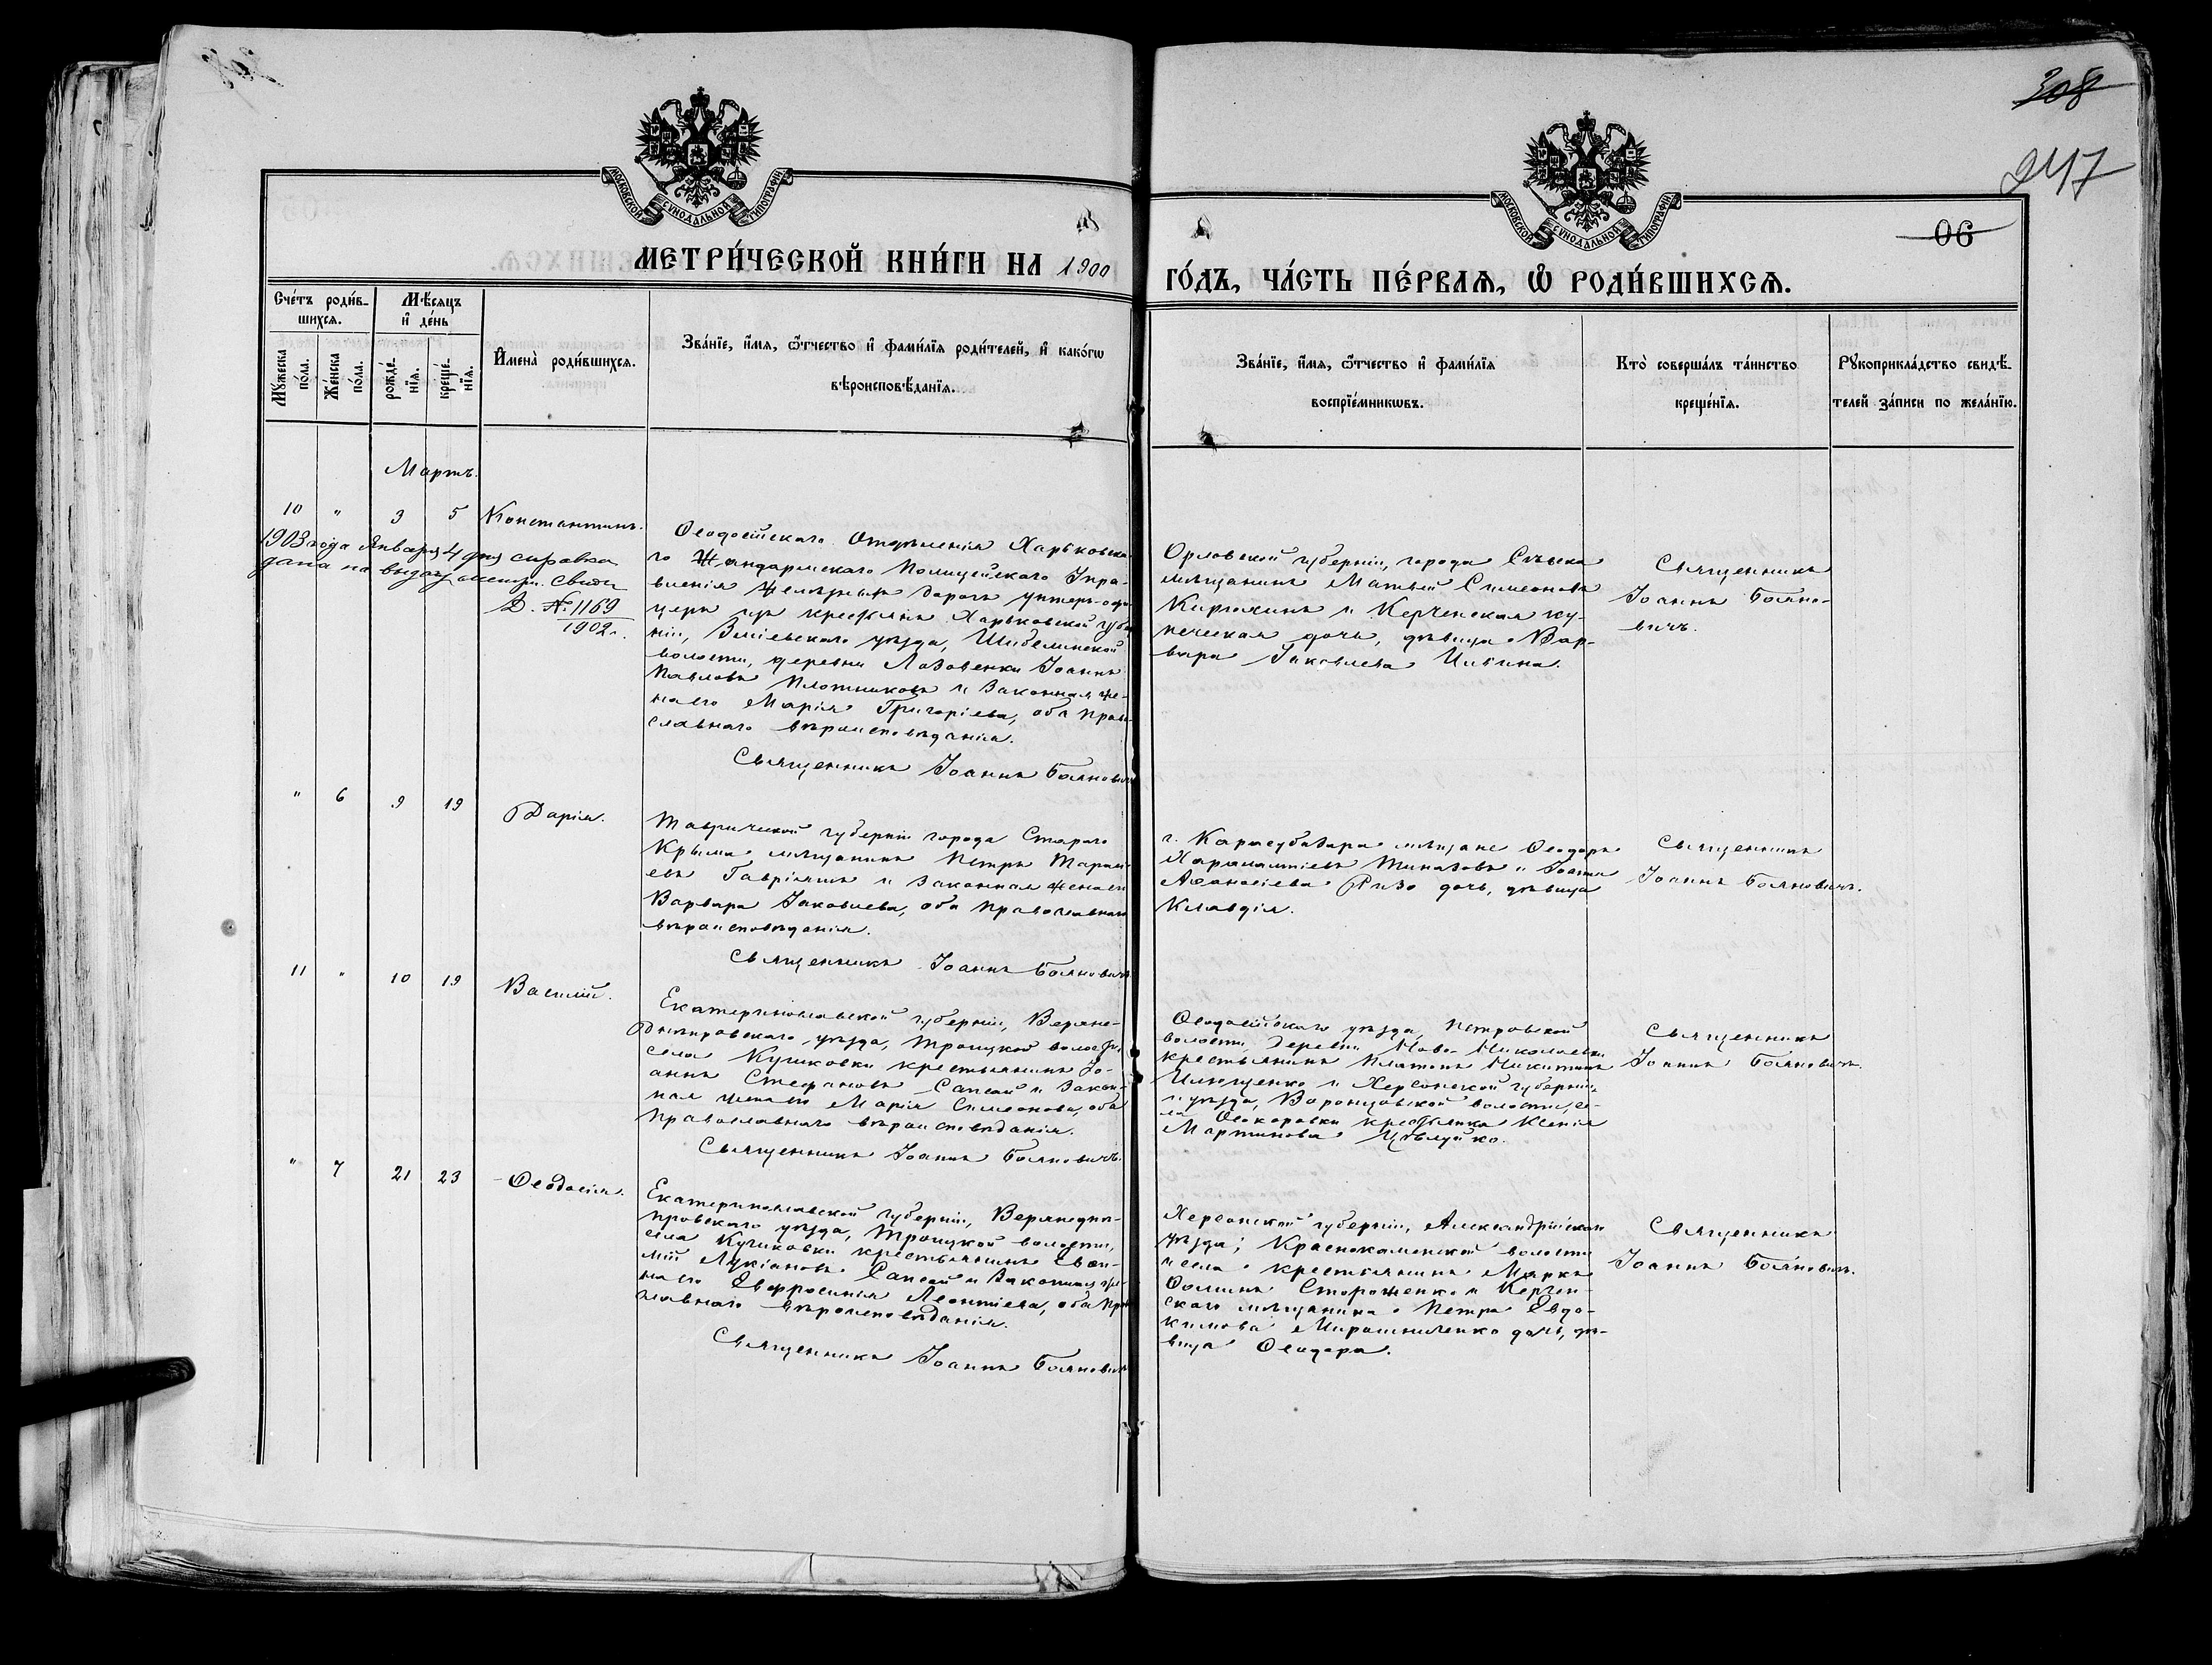 308
247
06
МОСКОВСКОЙ СѴНОДАЛЬНОЙ ТИПОГРАФІИ
МОСКОВСКОЙ СѴНОДАЛЬНОЙ ТИПОГРАФІИ
МЕТРИ́ЧЕСКОЙ КНИ́ГИ НА 1900
ГО́ДЪ, ЧА́СТЬ ПЕ́РВАѦ, Ѽ РОДИ́ВШИХСѦ.
Сче́тъ роди́в-
шихсѧ.
Мѣ́сѧцъ
и҆ де́нь
Мꙋ́жеска
по́ла.
Же́нска
по́ла.
рожде́-
нїѧ.
креще́-
нїѧ.
И҆мена̀ роди́вшихсѧ.
Зва́нїе, и҆́мѧ, ѻ҆́тчество и҆ фами́лїѧ роди́телей, и҆ како́гѡ
вѣроисповѣ́данїѧ.
Зва́нїе, и҆́мѧ, ѻ҆́тчество и҆ фами́лїѧ
воспрїе́мникѡвъ.
Кто̀ соверша́лъ та́инство
креще́нїѧ.
Рꙋкоприкла́дство свидѣ́-
телей за́писи по жела́нїю.
Мартъ.
10 " 3 5 Константинъ.
1903 года Января 4 дня справка
дана на выдачу метр. свид.
Д. № 1169
1902 г.
Ѳеодосійскаго Отдѣленія Харьковска-
го Жандармскаго Полицейскаго Упра-
вленія Желѣзныхъ дорогъ унтеръ-офи-
церъ изъ крестьянъ Харьковской губер-
ніи, Зміевскаго уѣзда, Шебелинской
волости, деревни Лозовеньки Іоаннъ
Павловъ Плотниковъ и законная же-
на его Марія Григоріева, оба право-
славнаго вѣроисповѣданія.
Священникъ Іоаннъ Бояновичъ
Орловской губерніи, города Сѣвска
мѣщанинъ Матвей Симеоновъ
Кирюхинъ и Керченская ку-
печеская дочь, дѣвица Вар-
вара Іаковлева Ивина.
Священникъ
Іоаннъ Бояно-
вичъ.
" 6 9 19 Дарія.
Таврической губерніи города Стараго
Крыма мѣщанинъ Петръ
евъ и законная жена его
Варвара Іаковлева, оба православнаго
вѣроисповѣданія.
Священникъ Іоаннъ Бояновичъ
г. Карасубазара мѣщане Ѳеодоръ
Харалампіевъ и
Аѳанасіева Ризо дочь, дѣвица
Клавдія.
Священникъ
Іоаннъ Бояновичъ.
11 " 10 19 Василій.
Екатеринославской губерніи, Верхне-
Днѣпровскаго уѣзда, Троицкой волости,
села Кучиковки крестьянинъ Іо-
аннъ Стефановъ Сапсай и закон-
ная жена его Марія Симеонова, оба
православнаго вѣроисповѣданія.
Священникъ Іоаннъ Бояновичъ.
Ѳеодосійскаго уѣзда, Петровской
волости, деревни Ново-Николаевки
крестьянинъ Платонъ Никитинъ
Илющенко и Херсонской губерніи
и уѣзда, Воронцовской волости, се-
ла Осокоровки крестьянка Ксенія
Мартинова
Священникъ
Іоаннъ Бояновичъ.
" 7 21 23 Ѳеодосія.
Екатеринославской губерніи, Верхнеднѣ-
провскаго уѣзда, Троицкой волости,
села Кучиковки крестьянинъ Евѳи-
мій Лукіановъ Сапсай и законная же-
на его Евфросинія Леонтіева, оба пра-
славнаго вѣроисповѣданія.
Священникъ Іоаннъ Бояновичъ
Херсонской губерніи, Александрійскаго
уѣзда, Краснокаменской волости
и села крестьянинъ Маркъ
Ѳоминъ Стороженко и Керчен-
скаго мѣщанина Петра Евдо-
кимова Мирошниченко дочь, дѣ-
вица Ѳеодора.
Священникъ
Іоаннъ Бояновичъ.